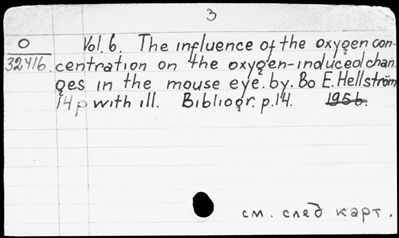 3
O Vol. 6. The influence of the oxygen con-
32416. centration on the oxygen-induced chan-
ges in the mouse eye. by. Bo E. Hellström
14 p with ill. Bibliogr. p. 14. 1956.
см. след карт.